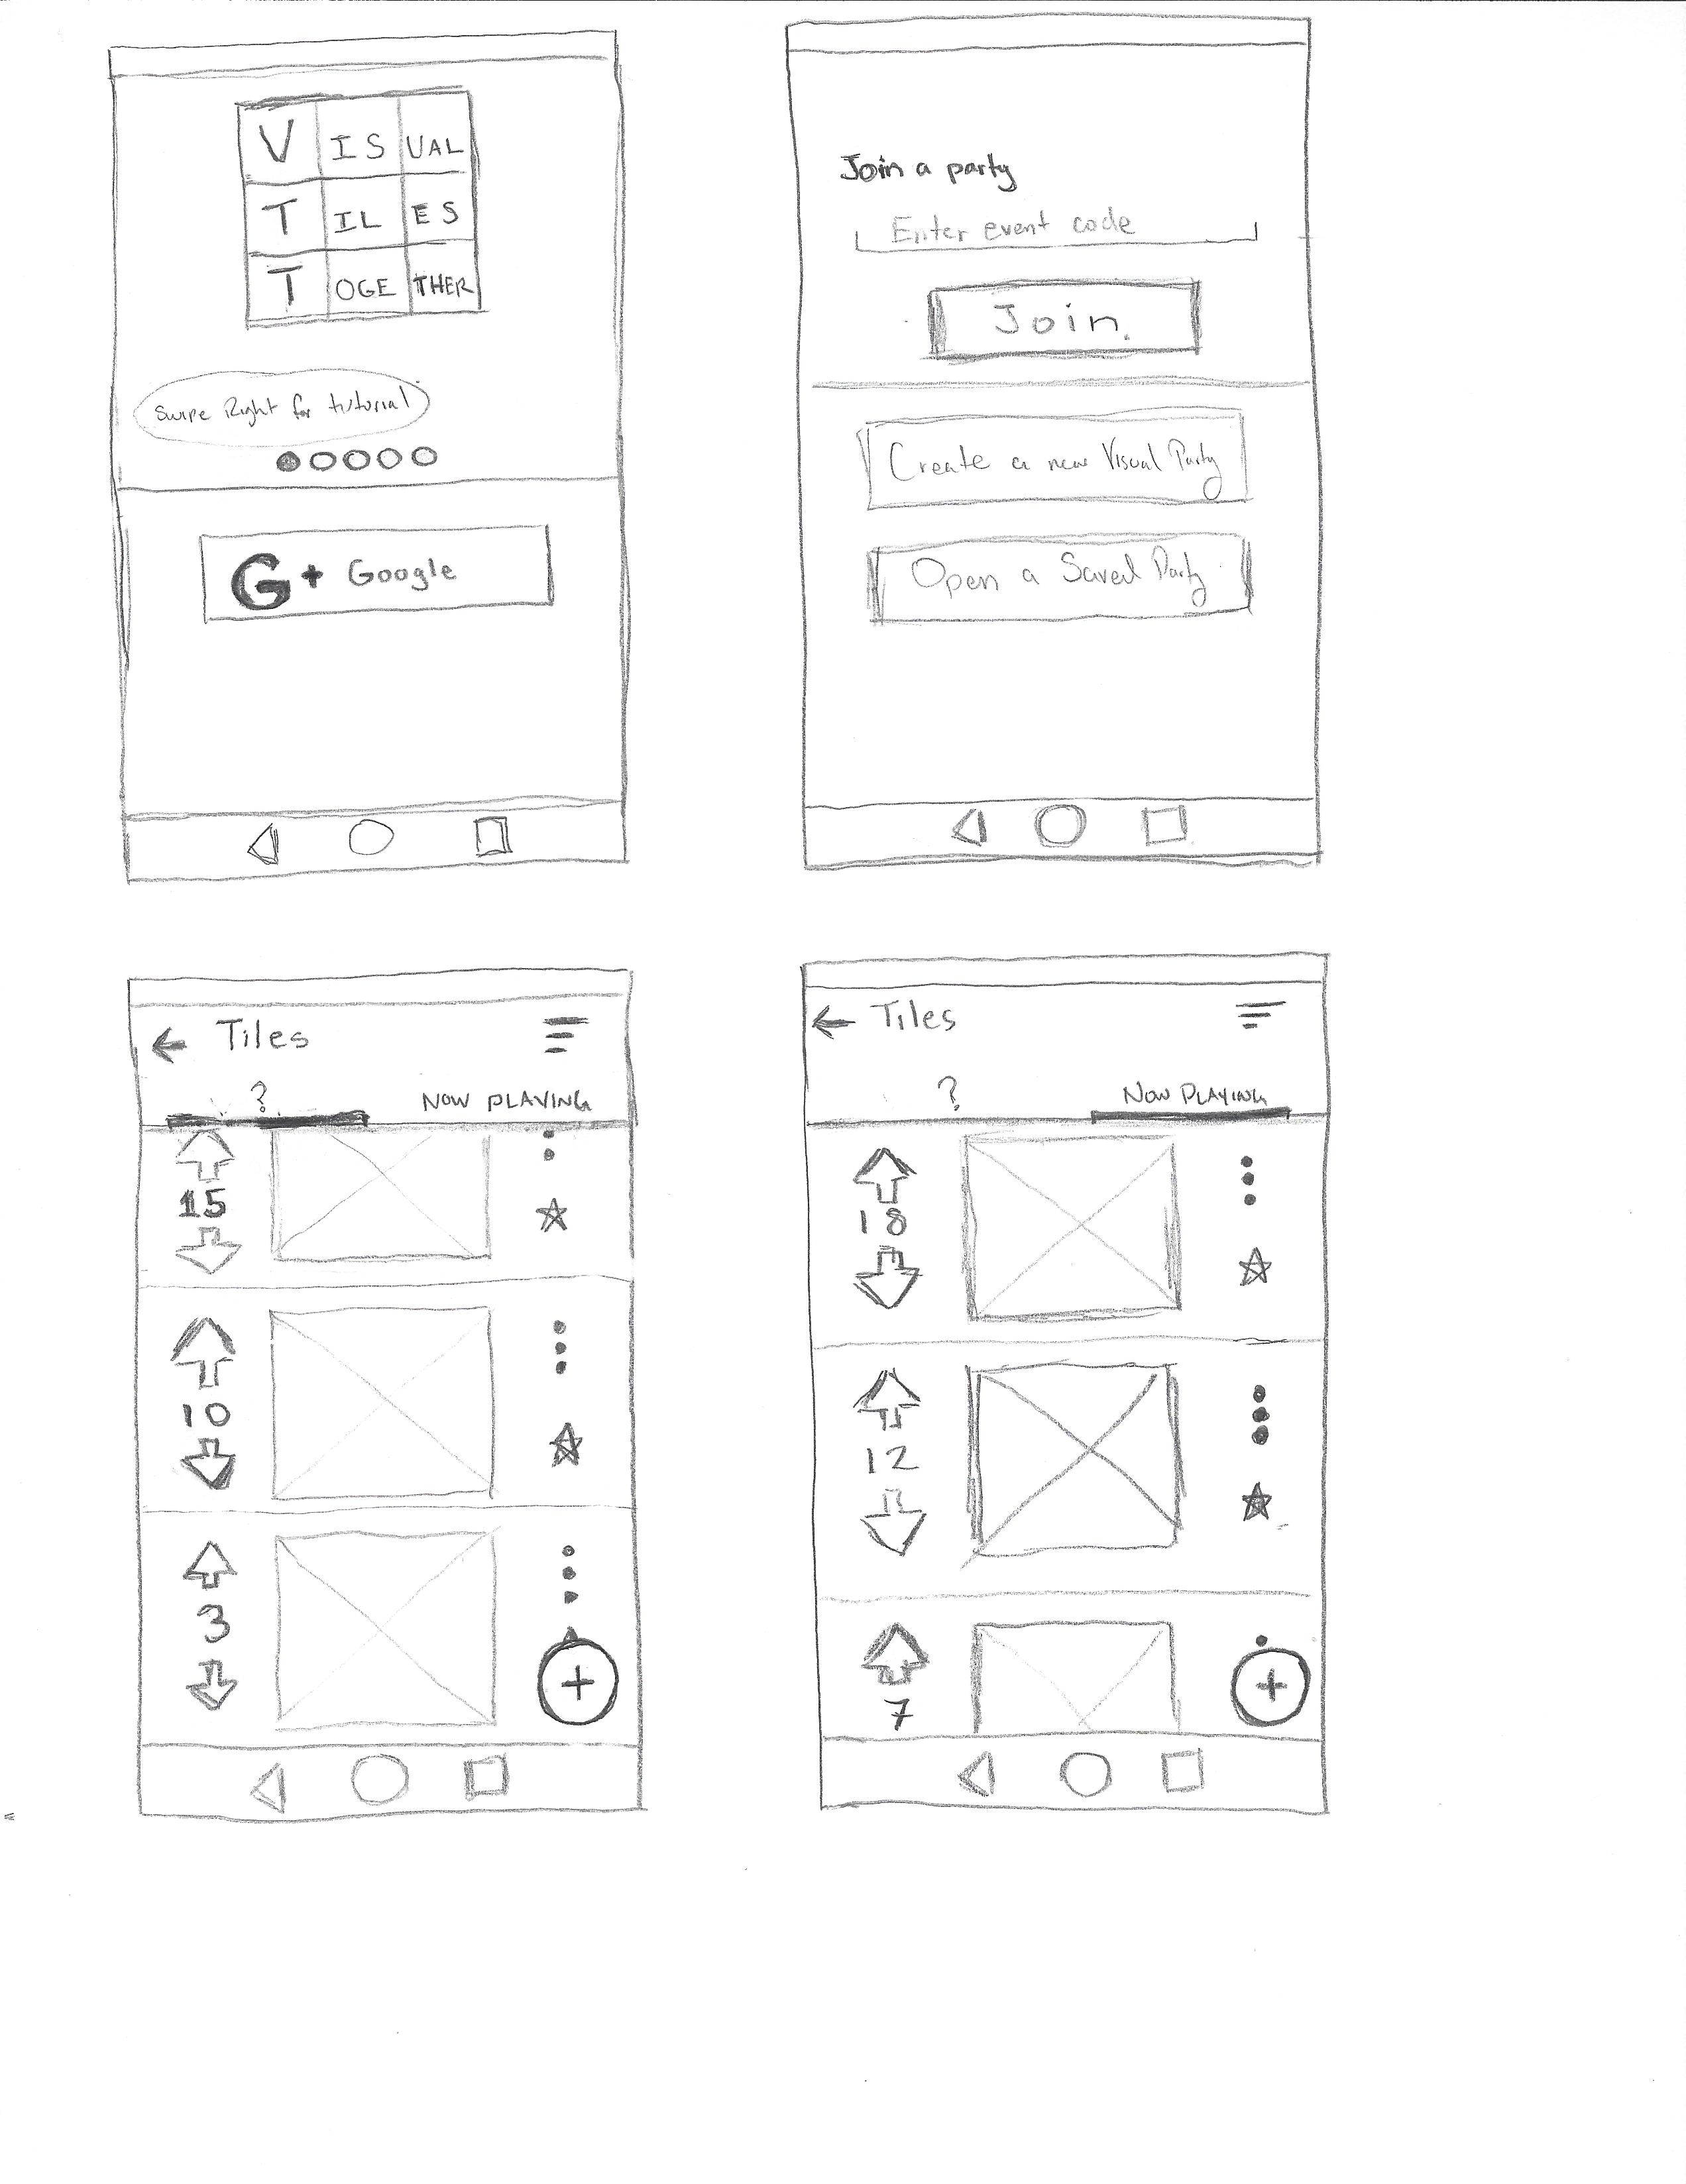 V IS UAL
T IL ES
T OGE THER
Swipe Right for tutorial
G+ Google
Join a party
Enter event code
Join
Create a new Visual Party
Open a Saved Party
Tiles
? NOW PLAYING
15
10
3
+
Tiles
? NOW PLAYING
18
12
7
+